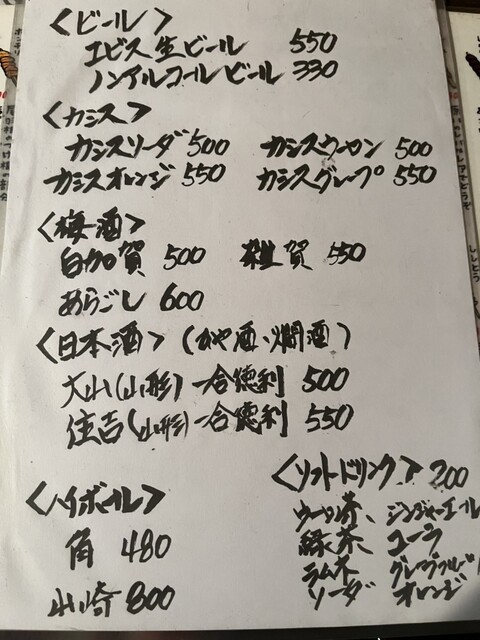 <ビール>
エビス生ビール 550
ノンアルコールビール 330
<カシス>
カシスソーダ 500 カシスウーロン 500
カシスオレンジ 550 カシスグレープ 550
<梅酒>
白加賀 500 雑賀 550
あらごし 600
<日本酒> (冷酒・燗酒)
大山(山形) 一合徳利 500
住吉(山形) 一合徳利 550
<ソフトドリンク> 200
ウーロン茶、ジンジャーエール
緑茶、コーラ
ラムネ グレープフルーツ
ソーダ オレンジ
<ハイボール>
角 480
山崎 800